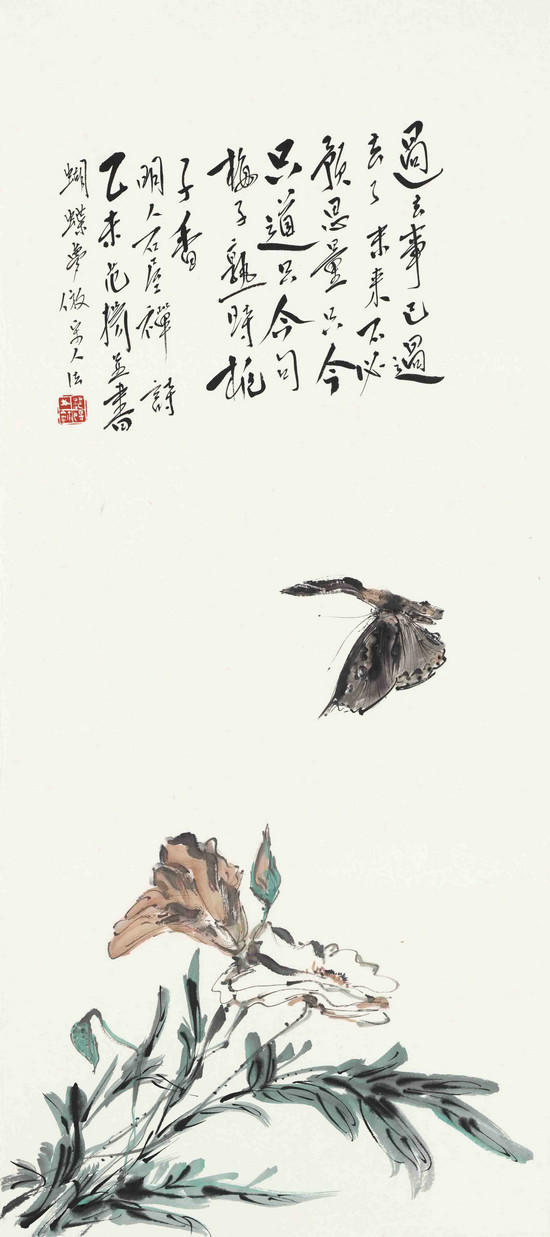 過去事已過
去了未來不必
預思量只今
只道只今句
梅子熟時梔
子香
明人石屋禪詩
乙未范擴並書
蝴蝶夢倣宋人法